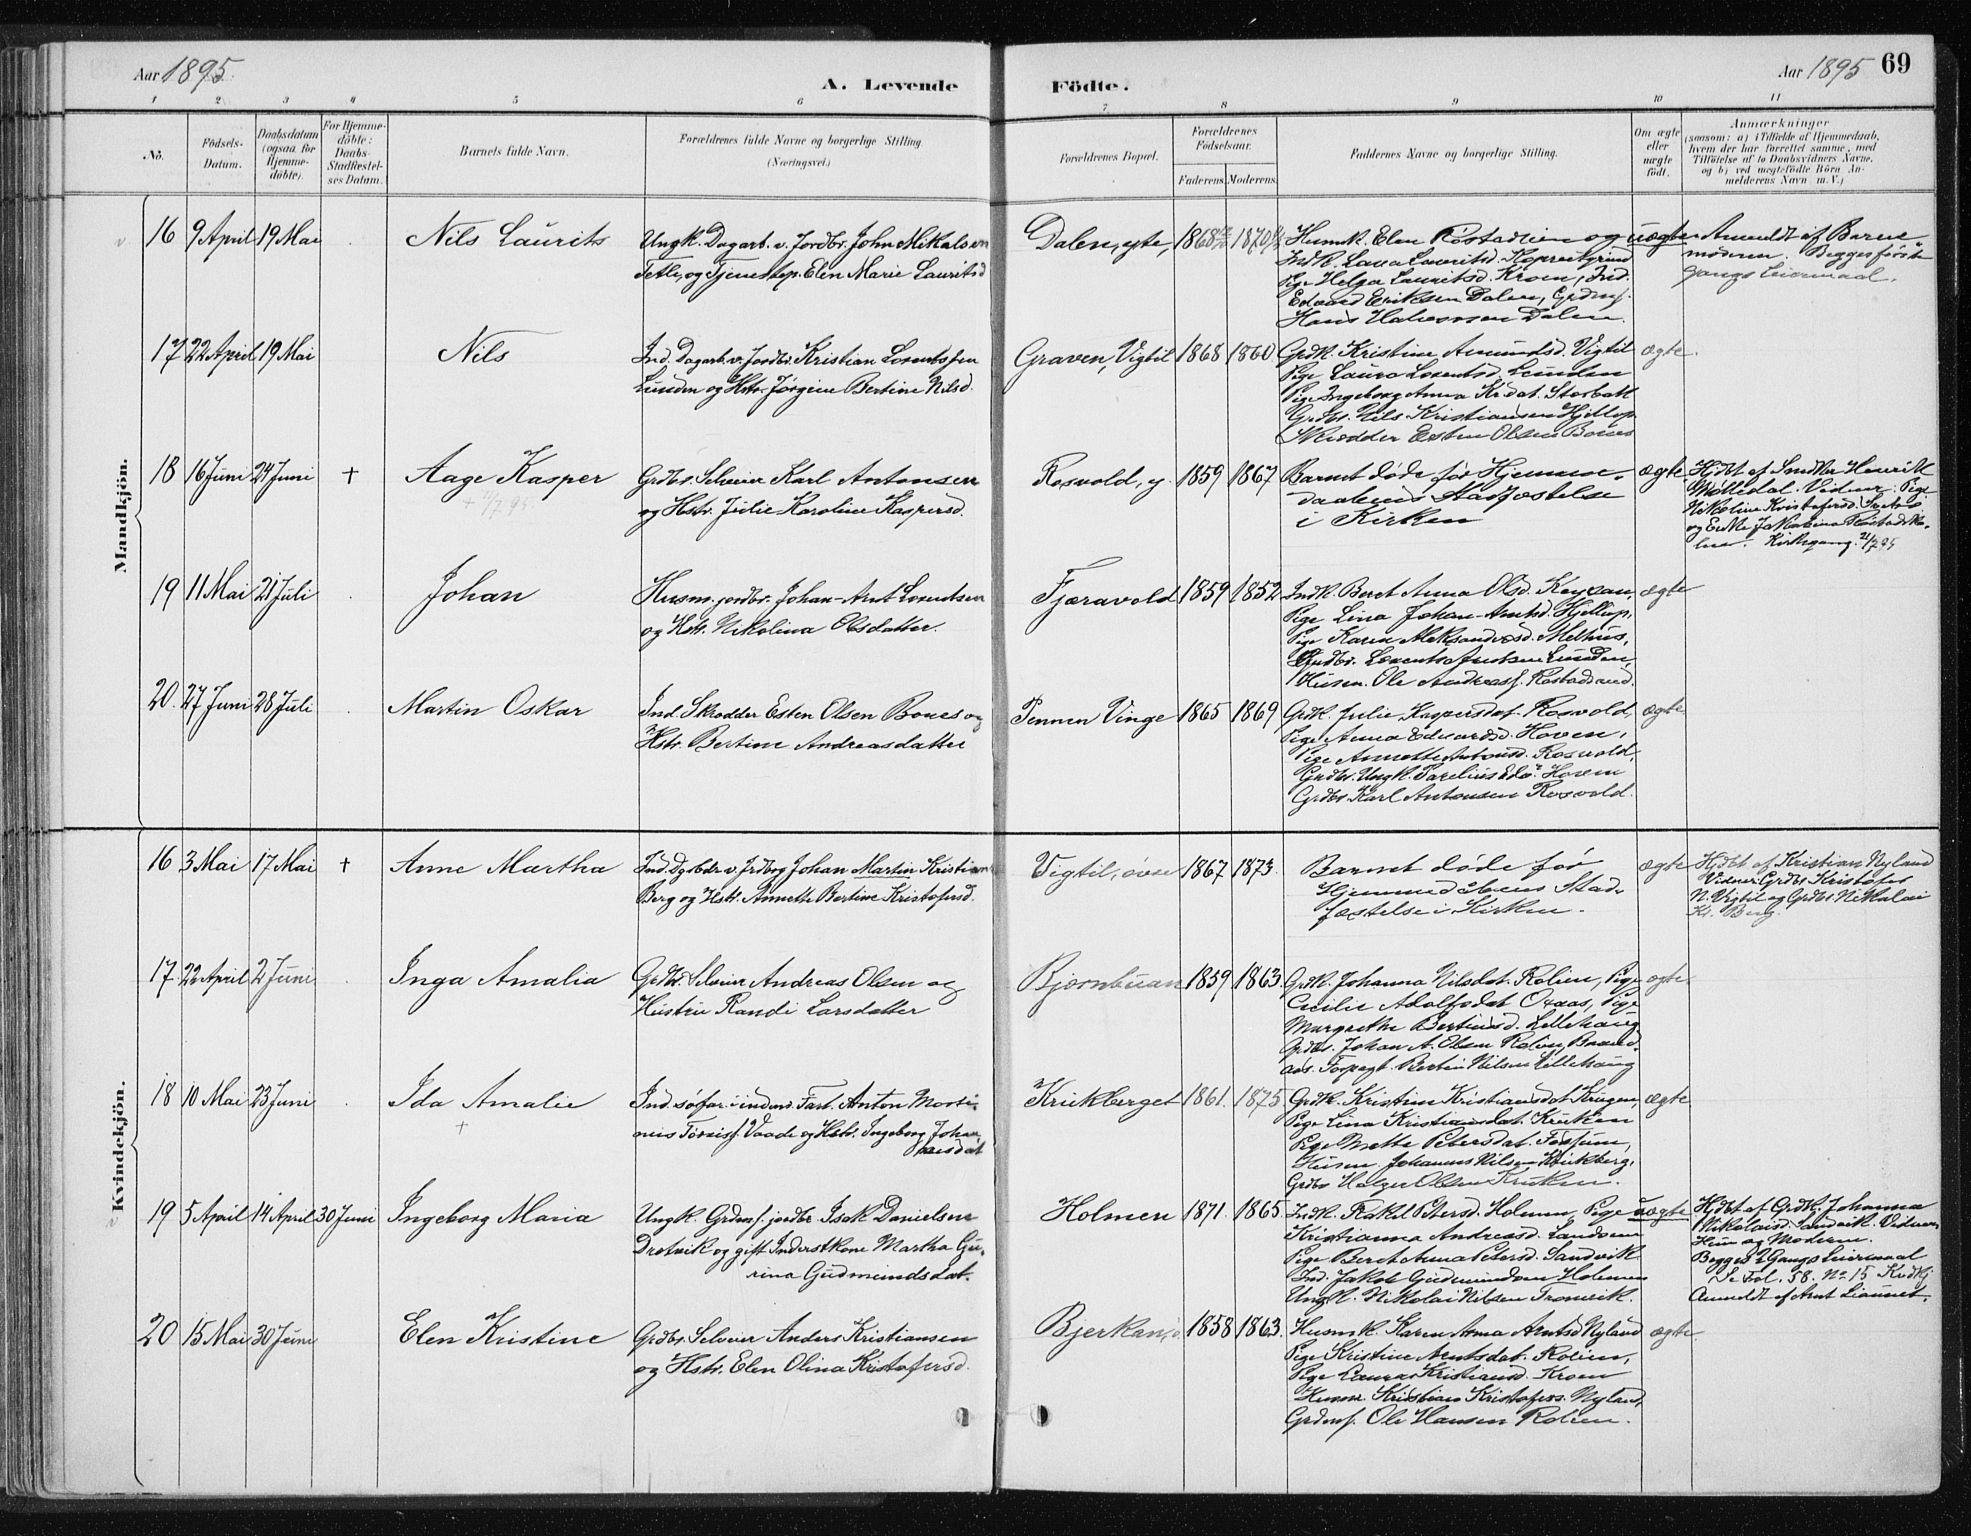 Aar 1895.
A. Levende
Födte.
Aar 1895
69
1
2
3
4
5
6
7
8
9
10
11
No.
Födsels-
Datum.
Daabsdatum
(ogsaa for
Hjemme-
döbte).
For Hjemme-
döbte:
Daabs-
Stadfæstel-
ses Datum.
Barnets fulde Navn.
Forældrenes fulde Navne og borgerlige Stilling
(Næringsvei.)
Forældrenes Bopæl.
Forældrenes
Födselsaar.
Faderens.
Moderens.
Faddernes Navne og borgerlige Stilling.
Om ægte
eller
uægte
födt.
Anmærkninger
(saasom: a) i Tilfælde af Hjemmedaab,
hvem der har forrettet samme, med
Tilföielse af to Daabsvidners Navne,
og b) ved uægtefödte Börn An-
melderens Navn m. V.)
Mandkjön.
16 9 April 19 Mai
Nils Laurits
Ungk. Dagarb. v. Jordbr. John Mikalsen
og Tjenestep. Elen Marie Lauritsd
Dalen, ytc, 1868 1870
Husmk. Elen Röstadlien og
Indk. Laura Lauritsd.
Pige Helga Lauritsd. Kroen, Ind.
Edvard Eriksen Dalen, Grdmf.
Hans Dalen.
uægte
Anmeldt af Barne
moderen. Begges förste
Gangs Leiermaal.
17 22 April 19 Mai
Nils
Ind. Dagarb. v. Jordbr. Kristian Lorntssen
Lunden og Hstr. Jörgine Bertine Nilsd.
Graven, Vigtil 1868 1860
Grdk. Kristine Amundsd. Vigtil
Pige Laura Lorentsd. Lunden
Pige Ingeborg Anna Kr.dat. Storbakk
Grdbr. Nils Kristiansen Hjellup
Skrædder Esten Olsen Boues
ægte.
18 16 Juni 24 Juni +
Aage Kasper
Grdbr. Selveier Karl Antonsen
og Hstr. Julie Karoline Kaspersd.
Rosvold, y. 1859 1867
Barnet döde för Hjemme-
daabens Stadfæstelse
i Kirken
ægte.
Hjdbt af Smdbr Henrik
Mölledal. Vidner: Pige
Nikoline Kristofersd.
og Enke
Kirkegang. 21/7 95
19 11 Mai 21 Juli
Johan
Husm. jordbr. Johan-Arnt Lorentsen
og Hstr. Nikolina Olsdatter.
Fjæravold 1859 1852
Indk. Beret Anna Olsd.
Pige Lina Johan-Arntsd. Hjellup,
Pige Karen Aleksandersd. Melhus,
Grdbr. Lorents Lunden,
Husm. Ole Andreass. Rostadsand.
ægte
20. 27 Juni 28 Juli
Martin Oskar
Ind. Skrædder Esten Olsen Boues og
Hstr. Bertine Andreasdatter
Vinge 1865 1869
Grdk. Julie Kaspersdat. Rosvold,
Pige Anna Edvardsd. Hoven,
Pige Annette Antonsd. Rosvold,
Grdbr. Ungk. Parelius Edv. Hoven
Grdbr. Karl Antonsen Rosvold.
ægte
Kvindekjön.
16 3 Mai 17 Mai +
Anne Martha
Ind. v. Johan Martin Kristians
Berg og Hstr. Annette Bertine Kristofersd.
Vigtil, övre 1867 1873.
Barnet döde för
Hjemmedaabens Stad-
fæstelse i Kirken.
ægte
Hjdbt af Kristian Nyland
Vidner: Grdbr. Kristofer
N. Vigtil og Grdbr. Nikolai
Kr. Berg.
17. 22 April 2 Juni
Inga Amalia
Grdbr. Selveier Andreas Olsen og
Hustru Randi Larsdatter
Bjørnbuan 1859 1863.
Grdk. Johanna Nilsdat. Rolien, Pige
Cecilie Adolfsdat Oxaas, Pige
Margrethe Bertinsd. Lillehaug
Grdbr. Johan A. Olsen Rolien,
Forpagt. Bertin Nilsen Lillehaug
ægte.
18 10 Mai 23 Juni
Ida Amalie
+
Ind. i Fart. Anton
Vaade og Hstr. Ingeborg Johan-
nesdat
Krukberget 1861. 1875.
Grdk. Kristine Kristiansdat Krugen,
Pige Lina Kristiansdat. Kruken
Pige Mette Petersdat. Forsum,
Husm. Johannes Nilsen Krukberg,
Grdbr Holger Olsen Kruken.
ægte
19 5 April 14 April 30 Juni
Ingeborg Maria
Ungk. Grdmf. jordbr. Isak Danielsen
Dretvik og gift Inderstkone Martha Gu-
rina Gudmundsdat.
Holmen 1871. 1865.
Indk. Rakel Petersd. Holmen, Pige
Kristianna Andreasd. Sandvik
Pige Beret Anna Petersd. Sandvik
Ind. Jakob Gudmundsen Holmen
Ungk. Nikolai Nilsen Tronvik.
uægte
Hjdbt af Grdk. Johanna
Nikolaisd. Sandvik. Vidner,
Hun og Moderen.
Begges 2 Gangs Leiermaal
Se Fol. 58. No 15 Kvdkj
Anmeldt af Arnt
20 15 Mai 30 Juni
Elen Kristine
Grdbr. Selveier Anders Kristiansen
og Hstr. Elen Olina Kristofersd.
Bjerkan, 1858 1863.
Husmk. Karen Anna Arntsd Nyland
Pige Kristine Arntsdat. Rolien,
Pige Laura Kristiansd. Kroen
Husm. Kristian Kristofers. Nyland,
Grdmf. Ole Hansen Rolien.
ægte.